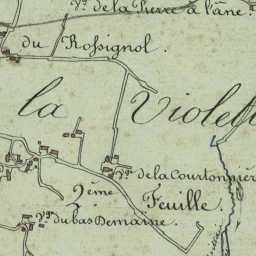 Vge de la Pierre à l'âne.
du Rossignol.
la Violett
Vge de la Courtonnièr
2ème Feuille.
Vge du bas Demaine